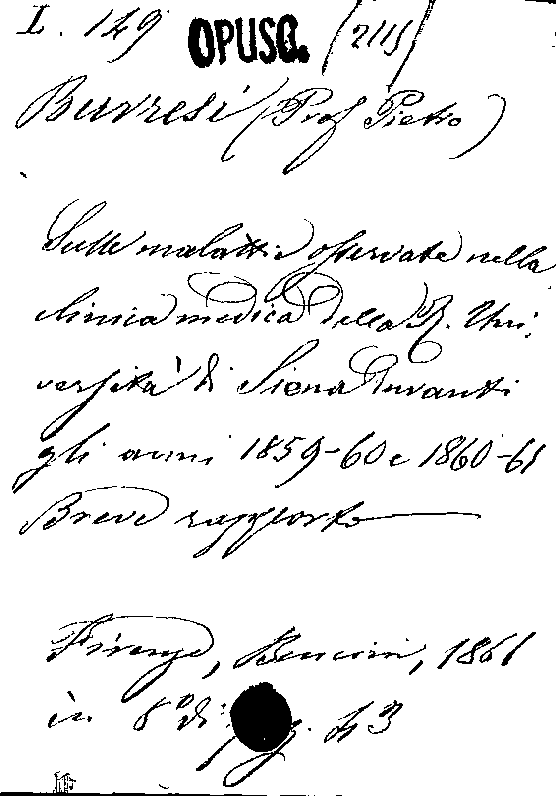 I. 149 OPUSC. (2115)
Burresi (Prof Pietro)
Sulle malattie osservate nella
clinica medica della R. Uni-
versità di Siena duranti
gli anni 1859-60 e 1860-61
Breve rapporto
Firenze, Bencini, 1861
in 8° di pag. 43